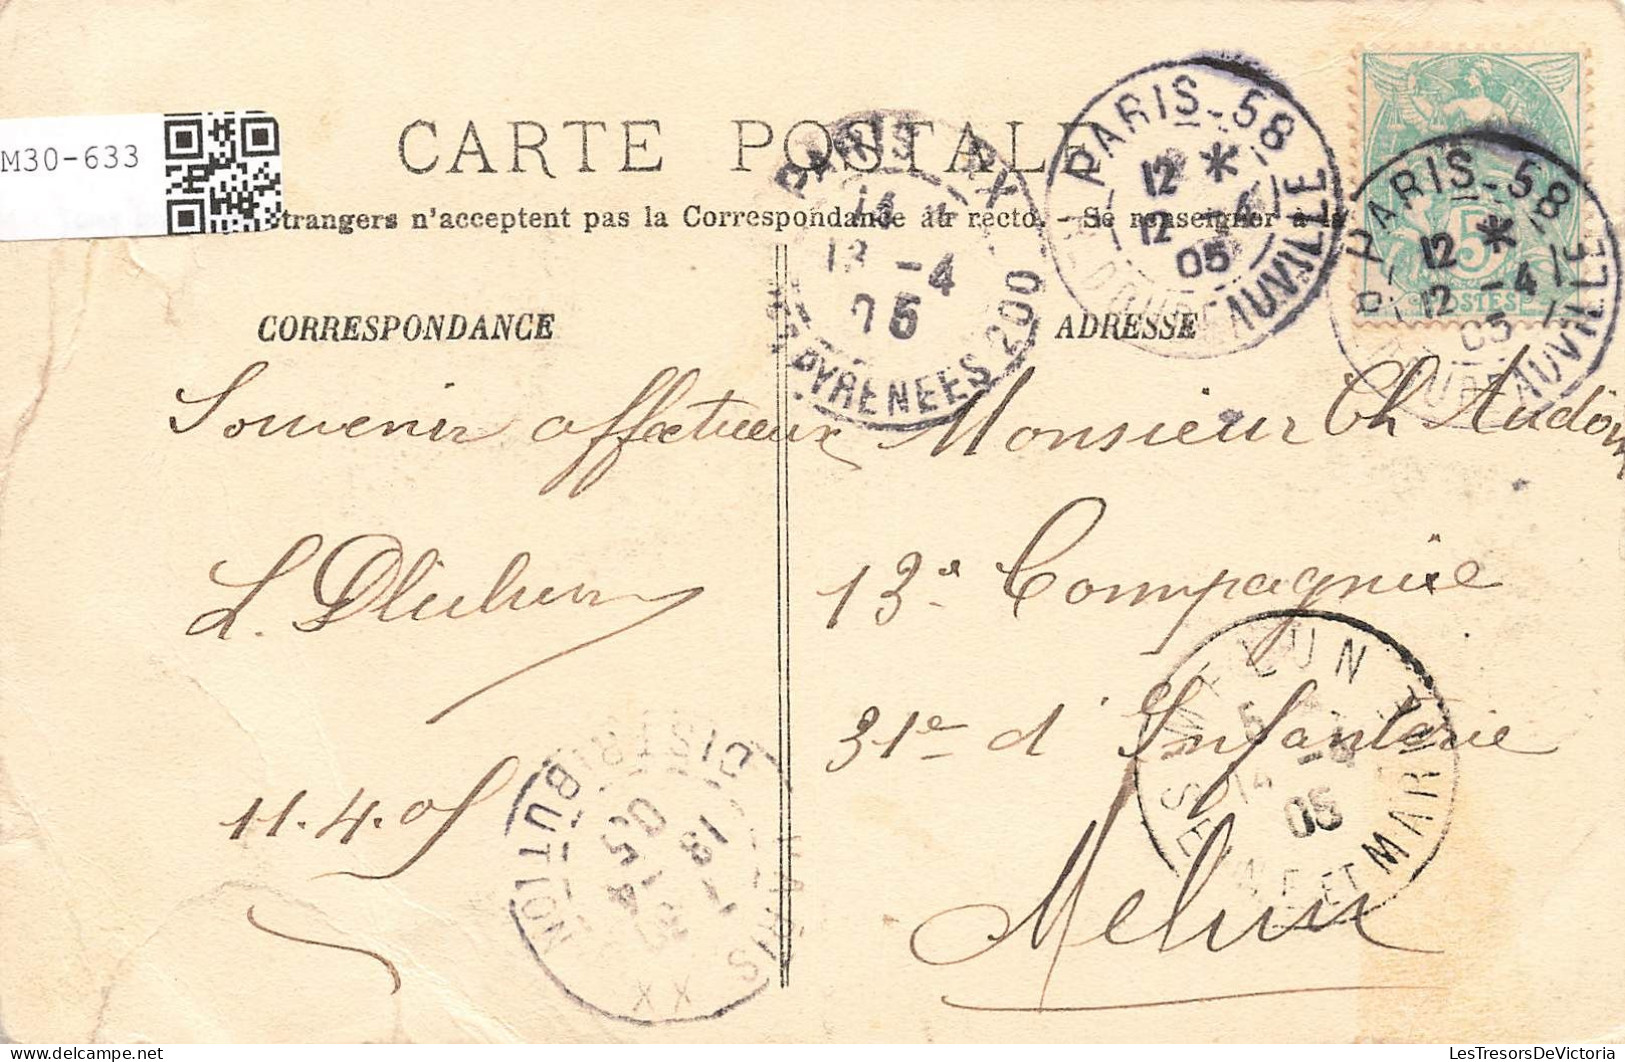 M30-633
CARTE POSTALE
trangers n'acceptent pas la Correspondance au recto. - Se renseigner à la
CORRESPONDANCE
ADRESSE
Souvenir affectueux
L.
11.4.05
Monsieur Ch Audoin
13e Compagnie
31e d'Infanterie
Melun
PARIS-58
12 *
12 -4
05
AUVILLE
PARIS-58
12 *
12 -4
05
AUVILLE
5
POSTES
PARIS XX
14
13 -4
05
PYRENEES 200
MELUN
5
14 -4
05
SEINE ET MARNE
DISTRIBUTION
18
05
PARIS XX
LesTresorsDeVictoria